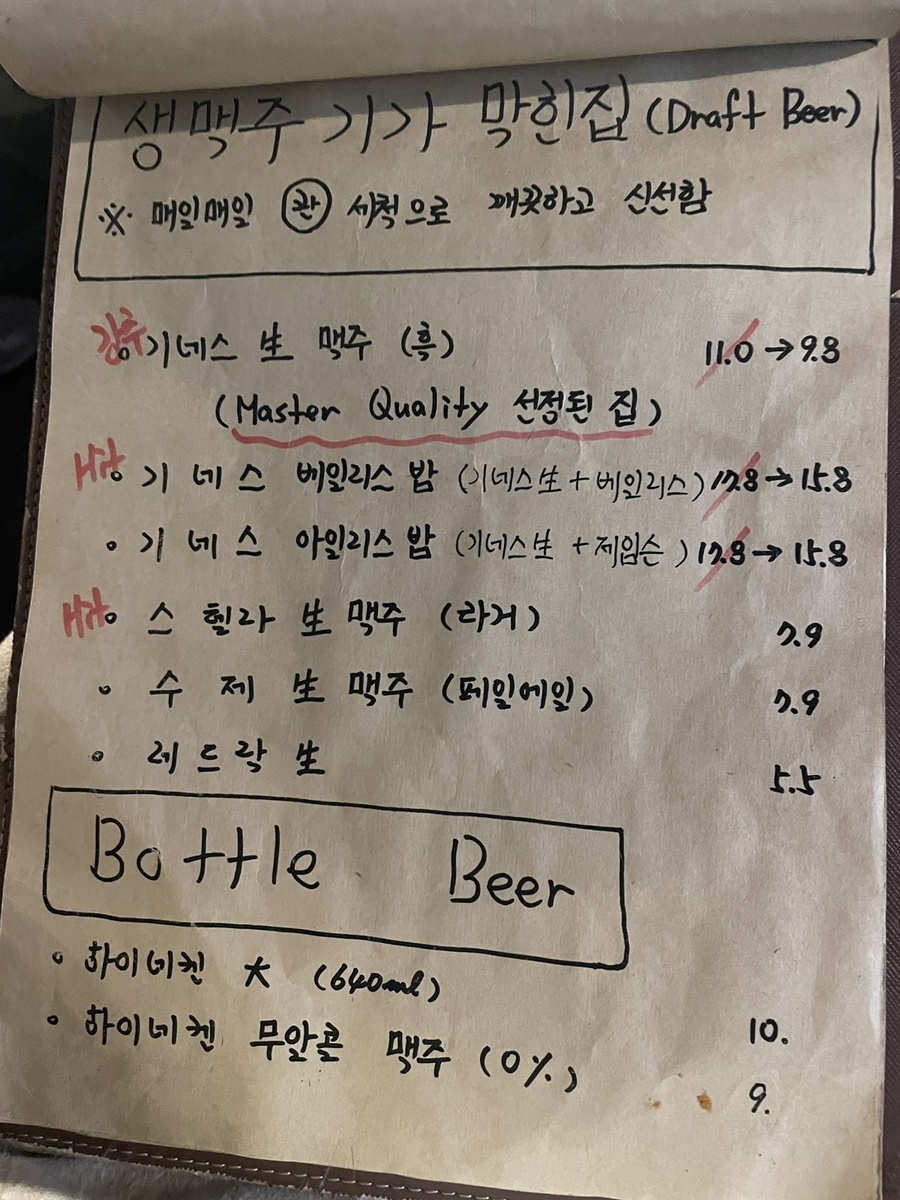 생맥주 기가 막힌집 (Draft Beer)
※ 매일매일 관 세척으로 깨끗하고 신선함
강추 기네스 生 맥주 (흑) 11.0 → 9.8
(Master Quality 선정된 집)
기네스 베일리스 밤 (기네스生 + 베일리스) 17.8 → 15.8
• 기네스 아일리스밤 (기네스生 + 제임슨) 17.8 → 15.8
스텔라 生 맥주 (라거) 7.9
• 수제 生 맥주 (페일에일) 7.9
• 레드락 生 5.5
Bottle Beer
• 하이네켄 大 (640ml) 10.
• 하이네켄 무알콜 맥주 (0%) 9.